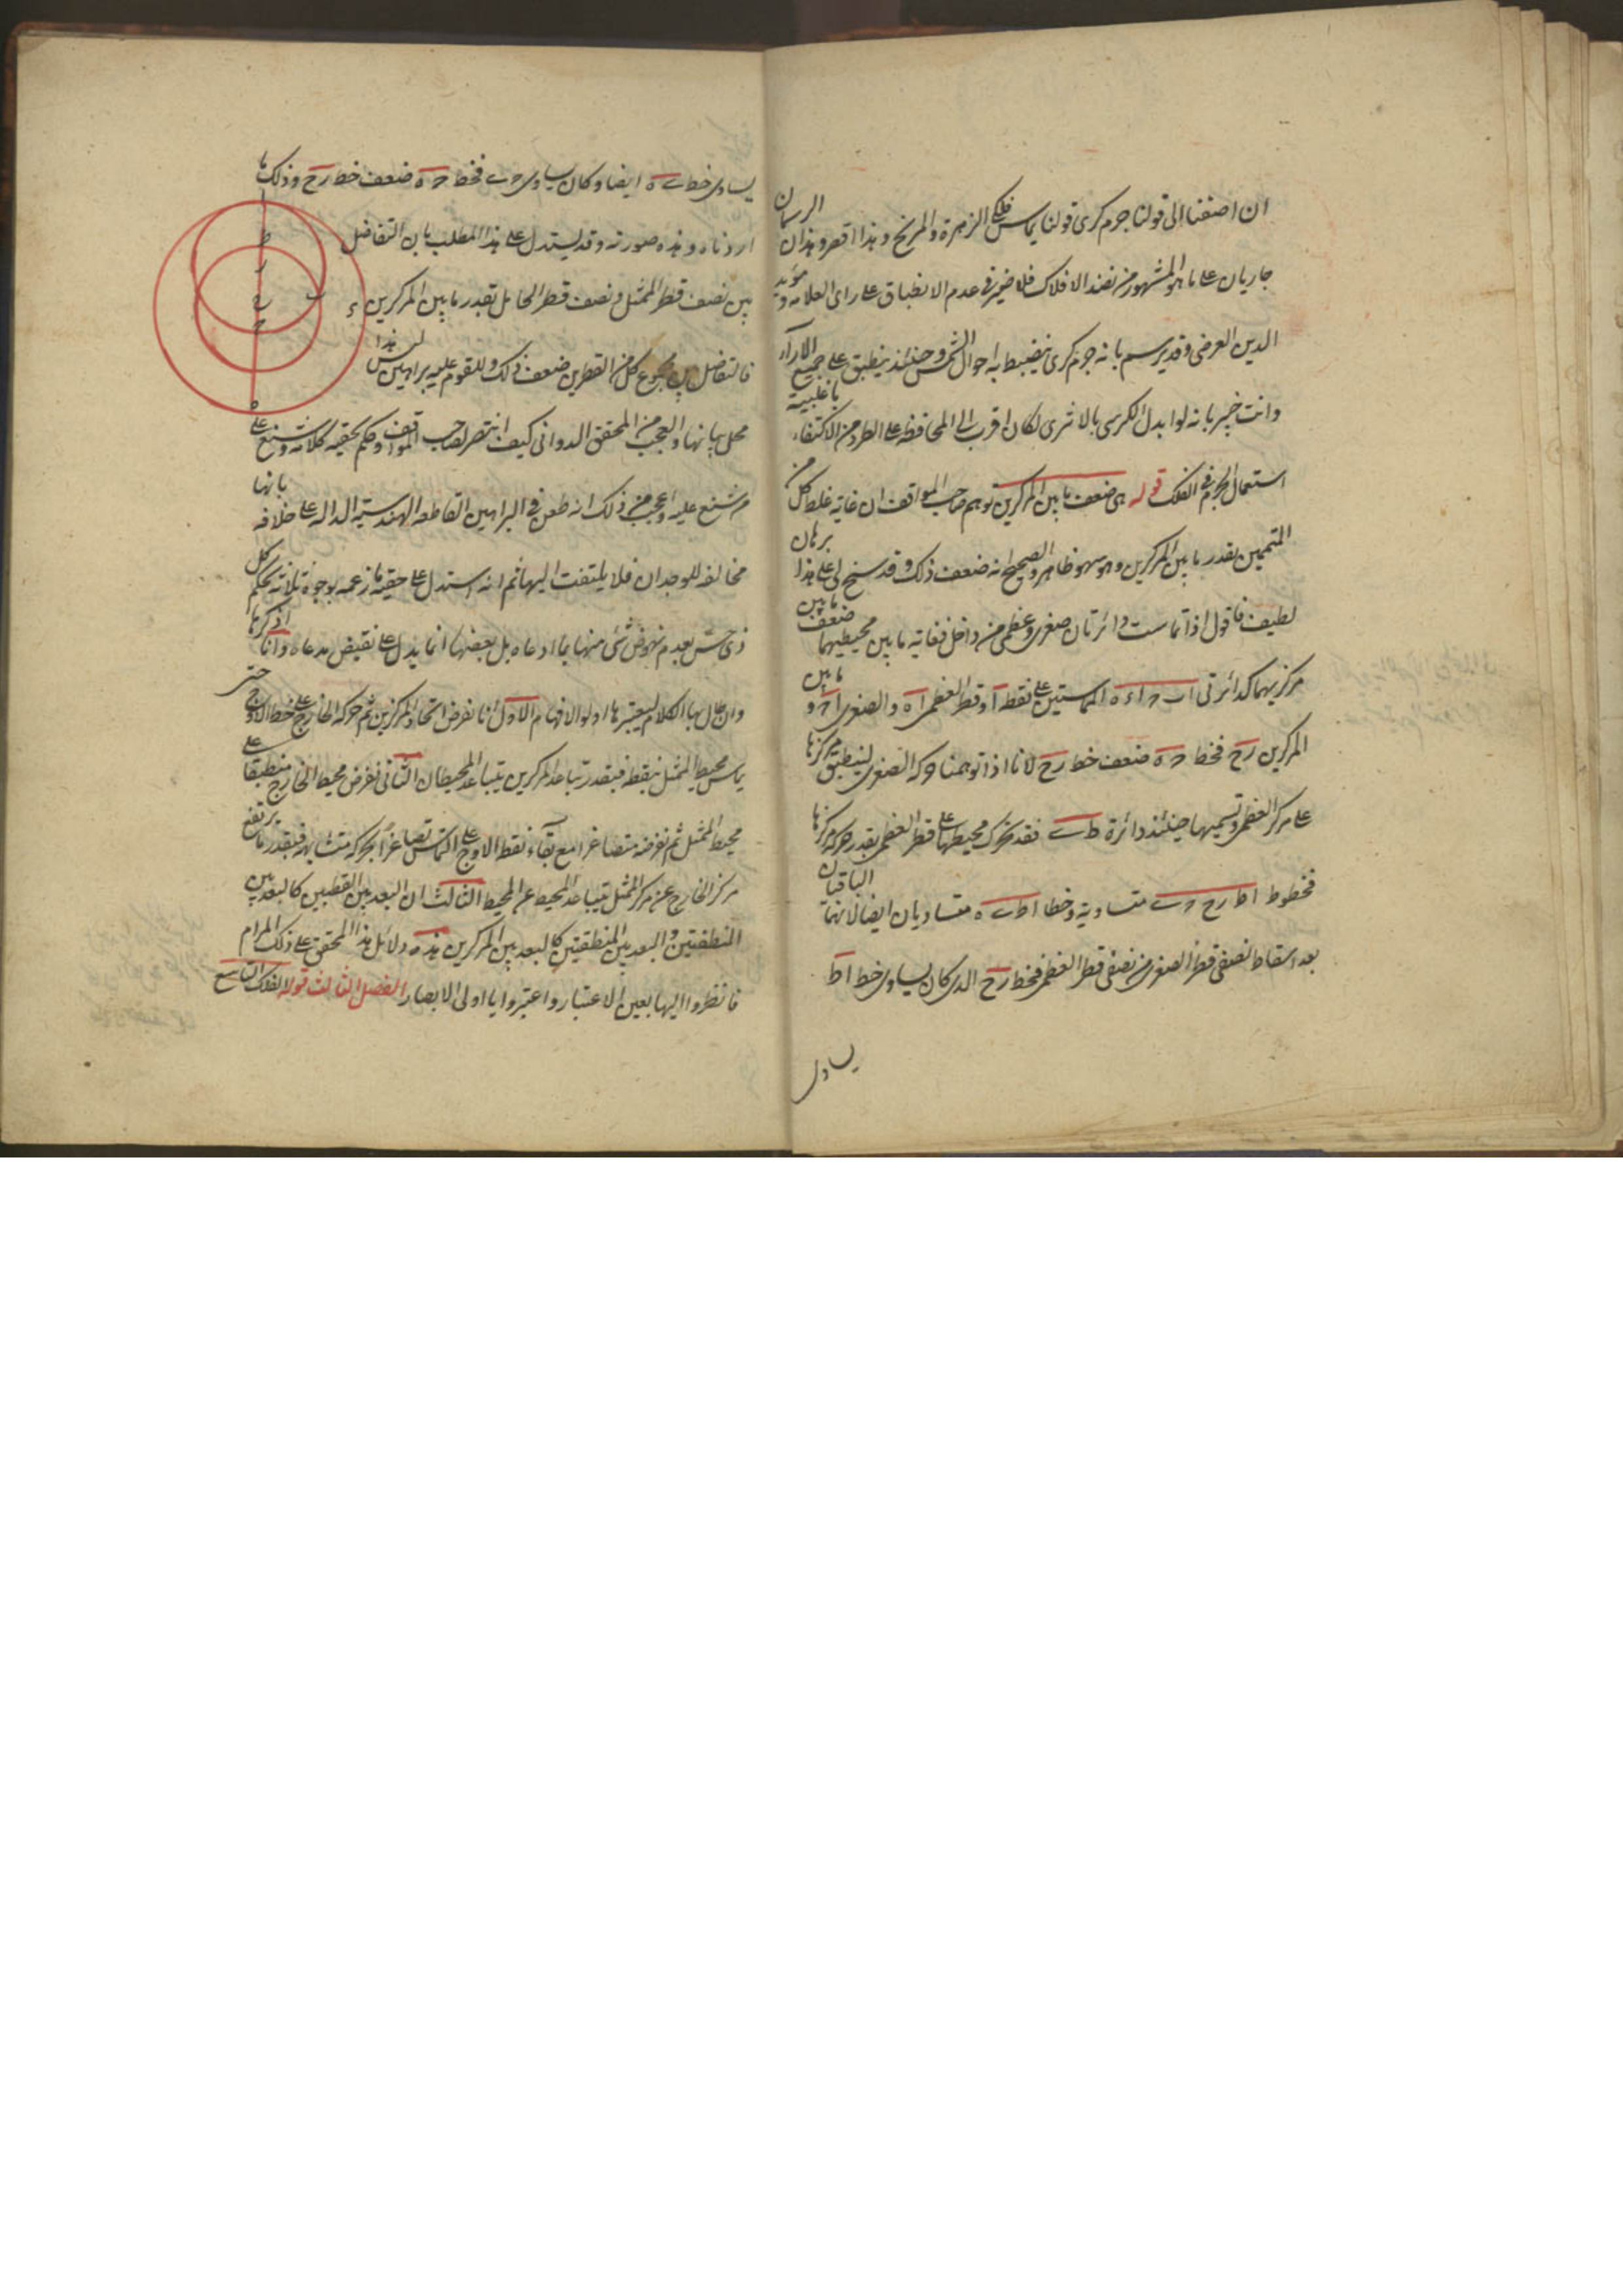 ان اضفنا الى قولنا جرم كرى قولنا يماس فلكى الزهرة والمريخ وهذا اقصر وهذان الرسمان
جاريان على ما هو المشهور من نضد الافلاك فلا ضير فى عدم الانطباق على راى العلامة ومؤيد
الدين العرضى وقد يرسم بانه جرم كرى ينضبط به احوال الشمس وحينئذ ينطبق على جميع الارآء
وانت خبير بانه لو ابدل الكرى بالاثرى لكان اقرب الى المحافظة على الطرد من الاكتفاء باغلبية
استعمال الجرم فى الفلك قوله هى ضعف ما بين المركزين توهم صاحب المواقف ان غاية غلظ كل من
المتممين بقدر ما بين المركزين وهو سهو ظاهر والصحيح انه ضعف ذلك وقد سنح لى على هذا برهان
لطيف فاقول اذا تماست دائرتان صغرى وعظمى من داخل فغاية ما بين محيطيهما ضعف ما بين
مركزيهما كدائرتى اب ح اء ه المتماستين على نقطة آ وقطر العظمى اه والصغرى اح وما بين
المركزين رح فخط ح ه ضعف خط رح لانا اذا توهمنا حركة الصغرى لينطبق مركزها
على مركز العظمى وتسميها حينئذ دائرة ط ى فقد تحرك محيطها على قطر العظمى بقدر حركة مركزها
فخطوط اط رح ح ى متساوية وخطا اط ى ه متساويان ايضا لانهما الباقيان
بعد اسقاط نصفى قطر الصغرى من نصفى قطر العظمى فخط رح الذى كان يساوى خط اط
يساوى
يساوى خط ى ه ايضا وكان يساوى ح ى فخط ح ه ضعف خط رح وذلك ما
اردناه وهذه صورته وقد يستدل على هذا المطلب بان التفاضل
بين نصف قطر الممثل ونصف قطر الحامل بقدر ما بين المركزين
فالتفاضل بين مجموع كل من القطرين ضعف ذلك وللقوم عليه براهين ليس هذا
محل بيانها والعجب من المحقق الدوانى كيف انتصر لصاحب المواقف وحكم بحقية كلامه وشنع على
من شنع عليه واعجب من ذلك انه طعن فى البراهين القاطعه الهندسية الداله على خلافه بانها
مخالفة للوجدان فلا يلتفت اليها ثم انه استدل على حقية ما زعمه بوجوه ثلاثة يحكم كل
ذى حس بعدم نهوض شئ منها بما ادعاه بل بعضها انما يدل على نقيض مدعاه وانا اذكرها
وان طال بها الكلام ليعتبرها اولوا الافهام الاول انا نفرض اتحاد المركزين ثم حركة الخارج على خط الاوج حتى
يماس محيط الممثل بنقطة فبقدر تباعد المركزين يتباعد المحيطان الثانى نفرض محيط الخارج منطبقا على
محيط الممثل ثم نفرضه متصاغرا مع بقآء نقطة الاوج على التماس تصاغرا بحركة متشابهة فبقدر ما يرتفع
مركز الخارج عن مركز الممثل يتباعد المحيط عن المحيط الثالث ان البعد بين القطبين كالبعد بين
المنطقتين والبعد بين المنطقتين كالبعد بين المركزين هذه دلائل هذا المحقق على ذلك المرام
فانظروا اليها بعين الاعتبار واعتبروا يا اولى الابصار الفصل الثالث قوله الفلك التاسع
ا
ط
ر
ح
ح
ب
ء
ه